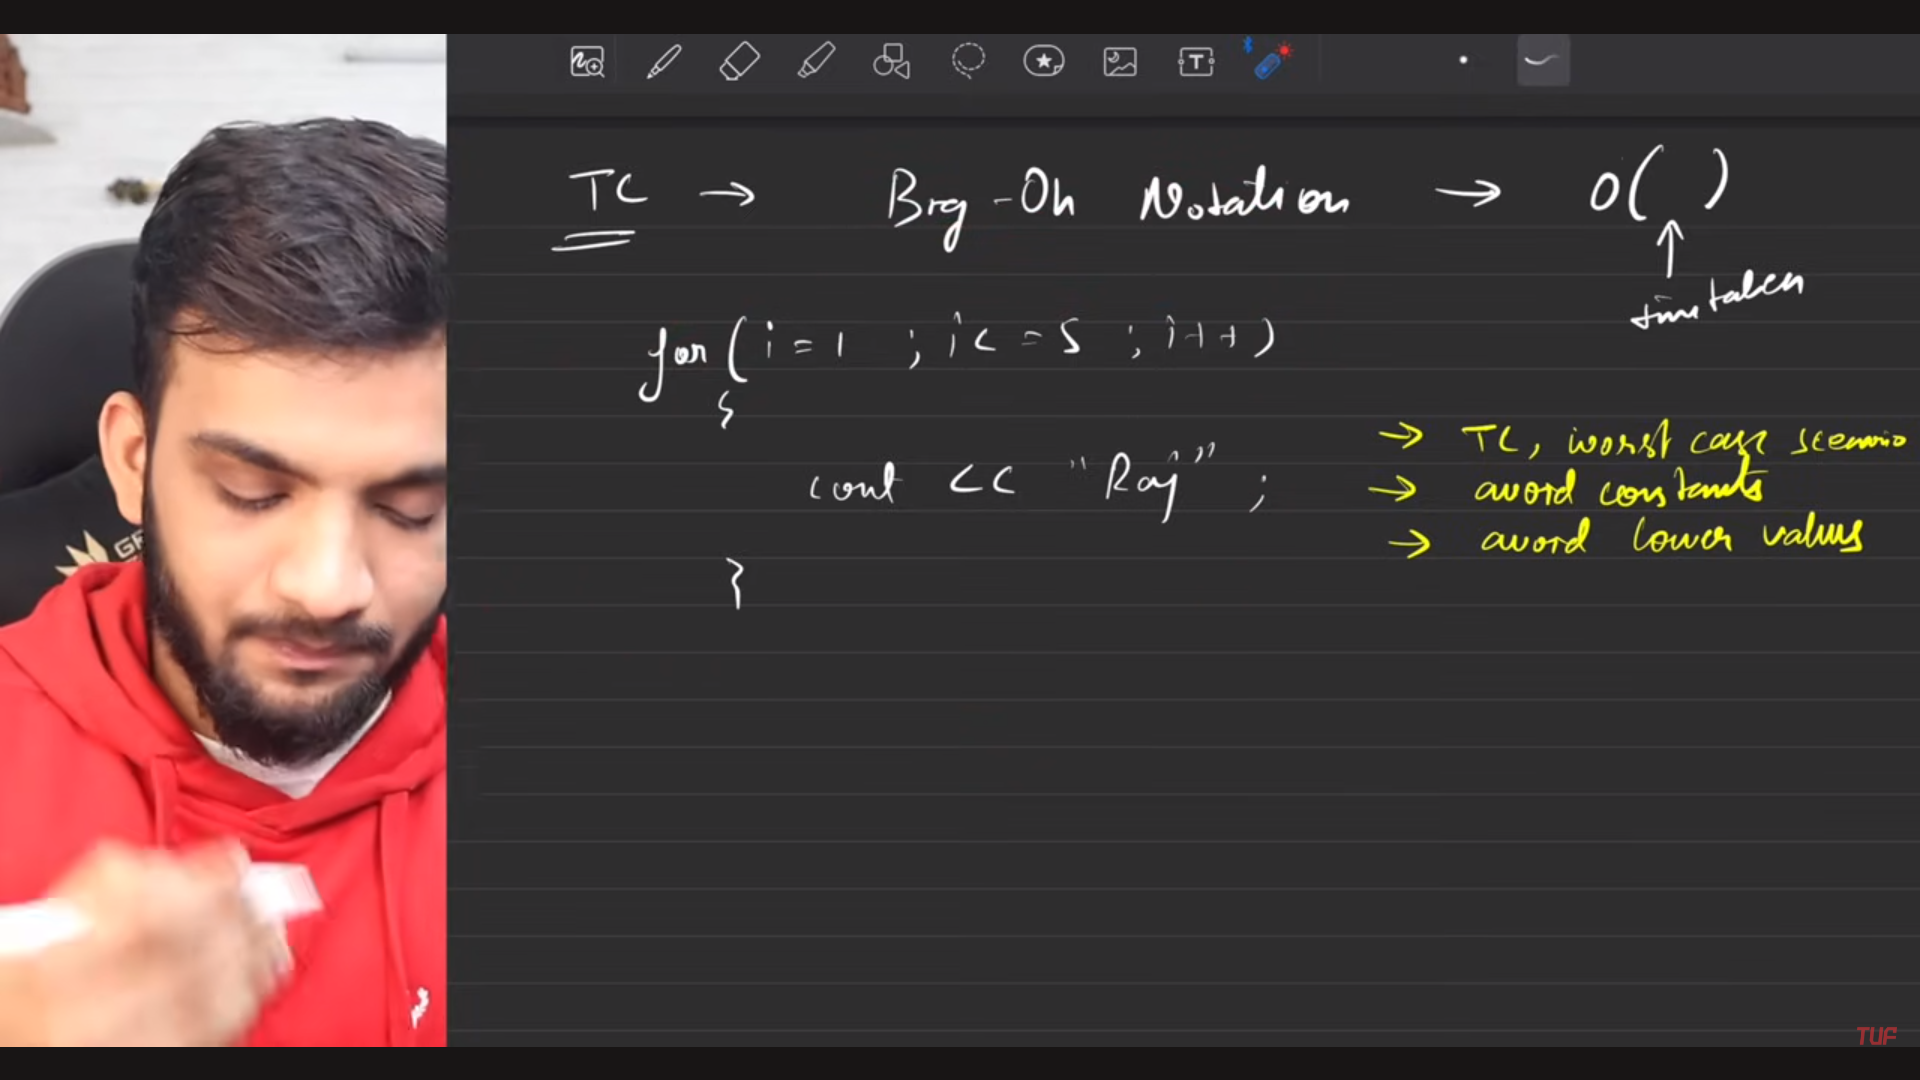 TC → Big-Oh Notation → O( )
↑
time taken
for( i = 1 ; i <= 5 ; i++)
{
cout << "Raj" ;
}
→ TC, worst case scenario
→ avoid constants
→ avoid lower values
T
GA
TUF